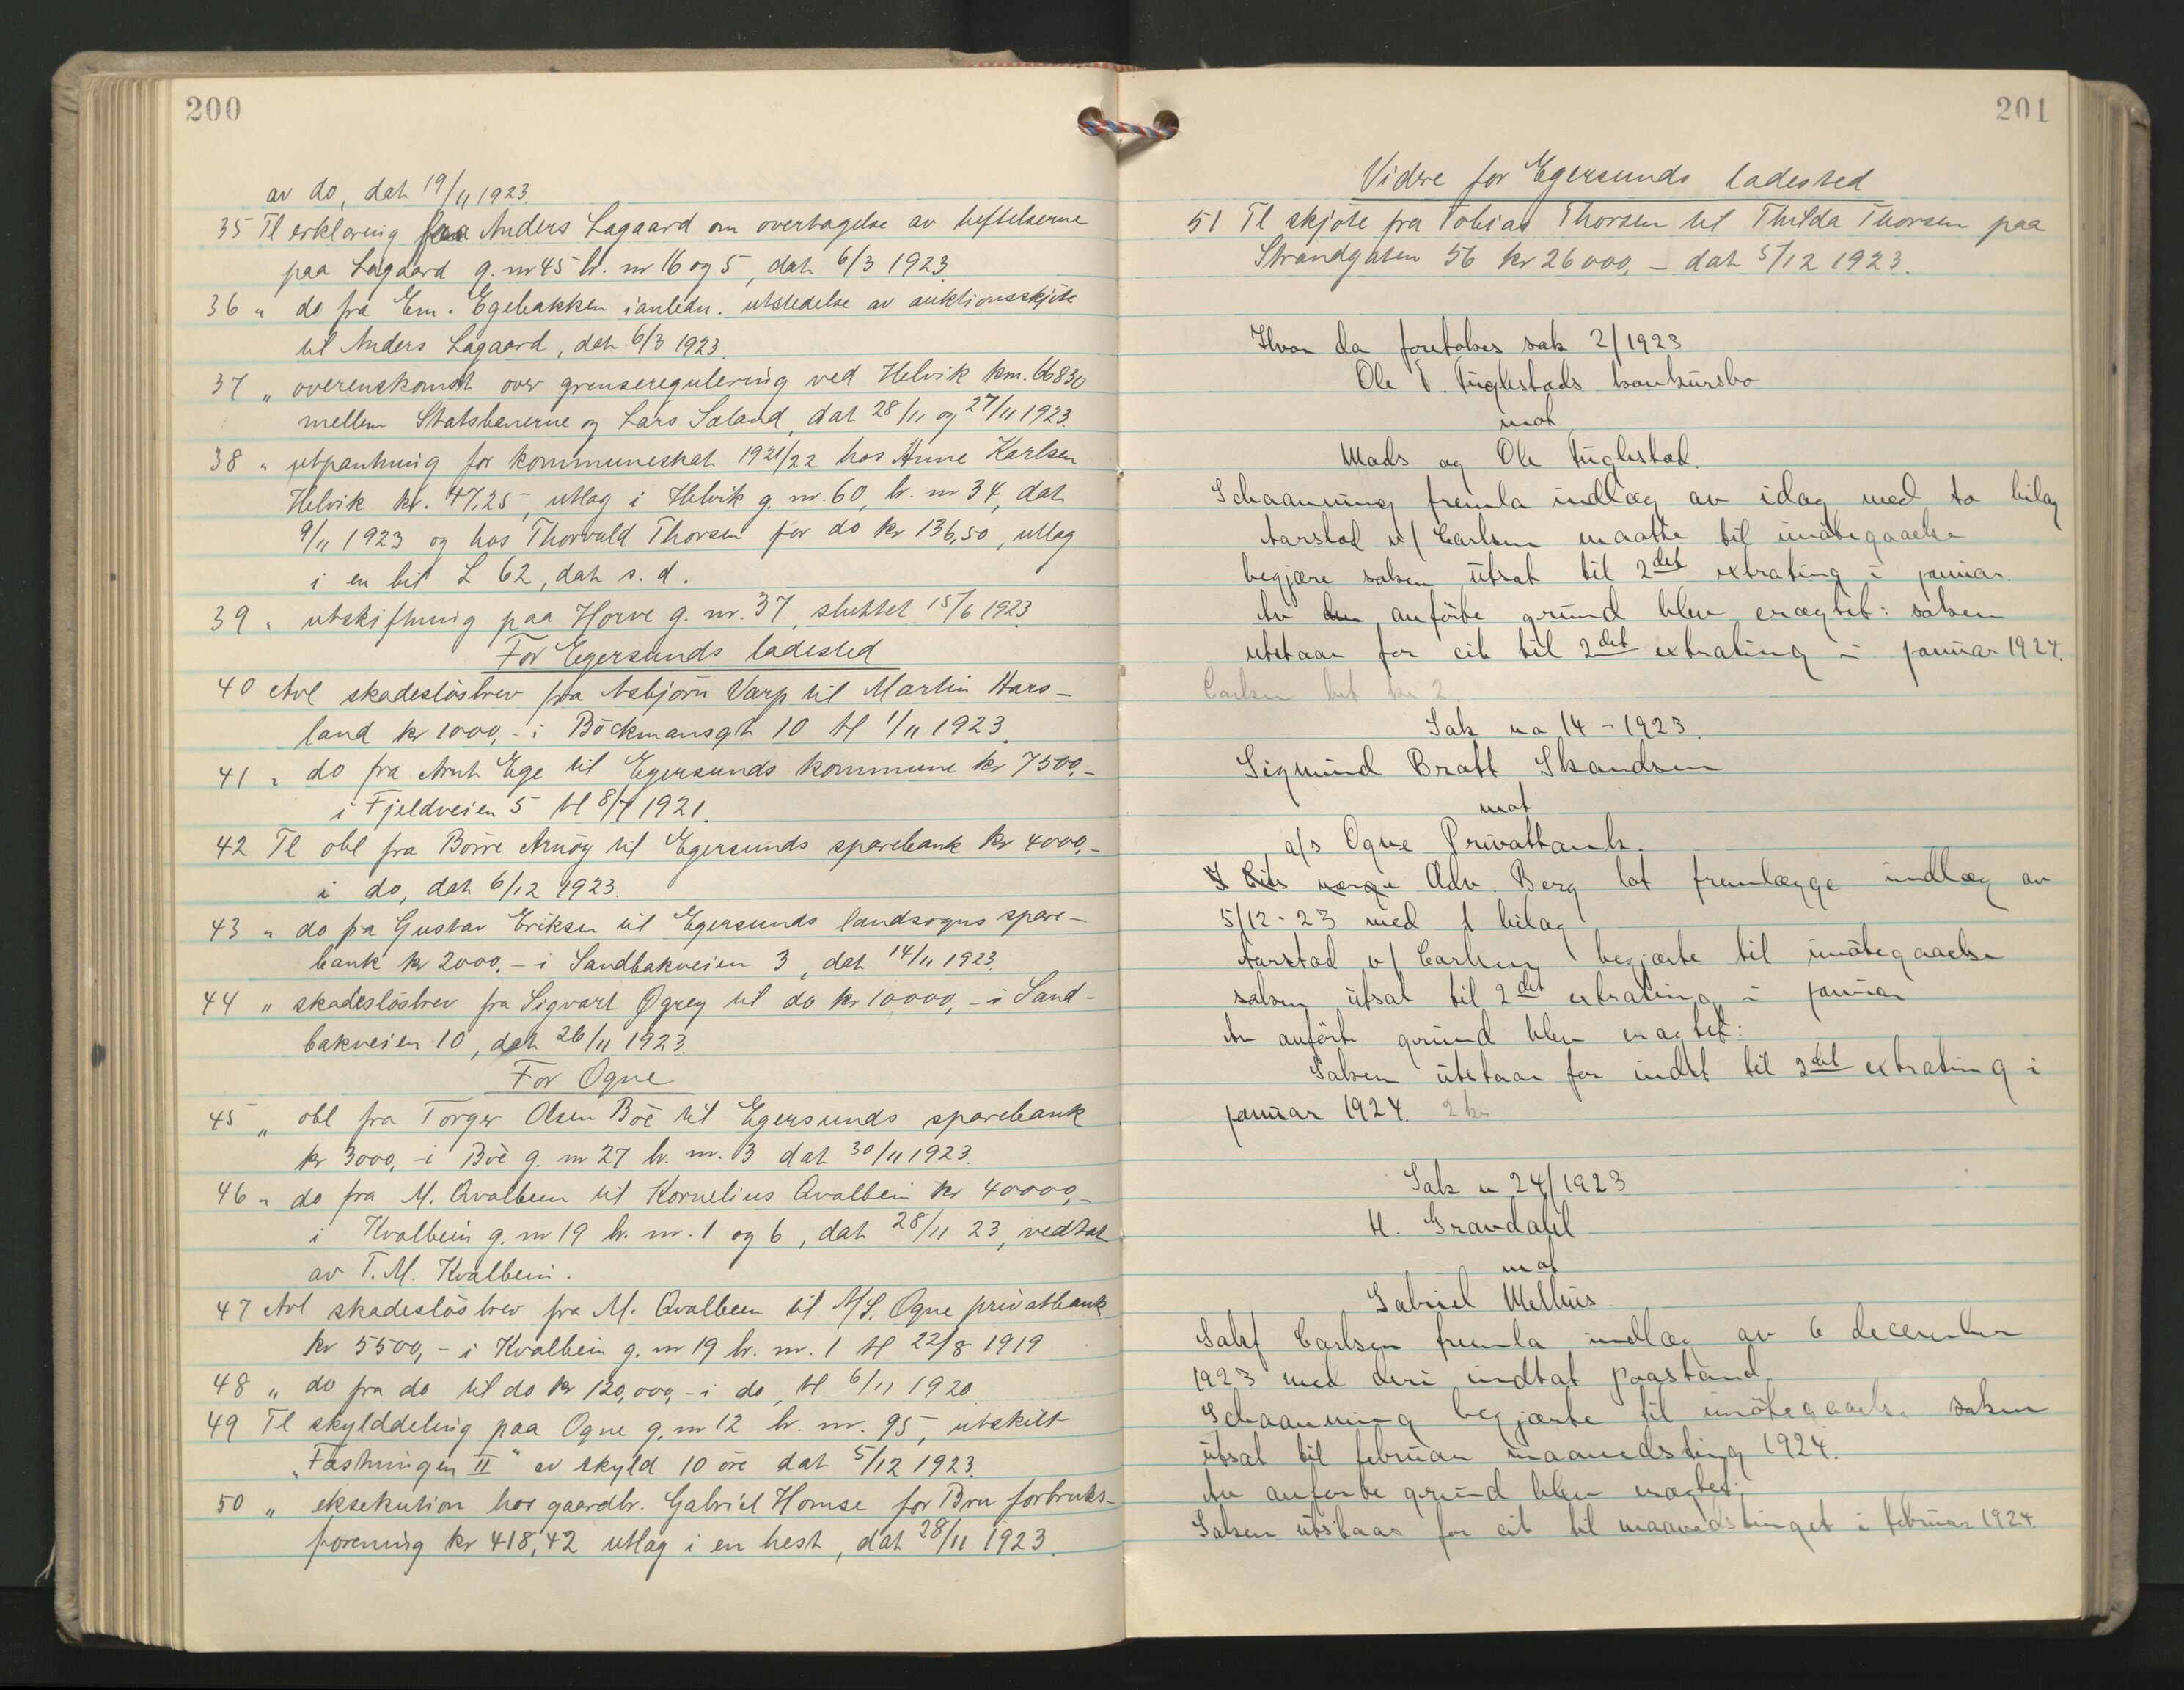 200
av do, dat 19/11 1923.
35 Tl erklæring fra Anders Lagaard om overtagelse av heftelserne
paa Lagaard g. nr 45 br. nr 16 og 5, dat 6/3 1923.
36 " do fra Em. Egebakken i anledn. utstedelse av auktionsskjöte
til Anders Lagaard, dat 6/3 1923.
37 " overenskomst over grenseregulering ved Helvik km. 66830
mellem Statsbanerne og Lars Sæland, dat 28/11 og 27/11 1923.
38 " utpantning for kommuneskat 1921/22 hos Anne Karlsen
Helvik kr. 47,25, utlag i Helvik g. nr. 60, br. nr 34, dat
9/11 1923 og hos Thorvald Thorsen for do kr 136,50, utlag
i en bit L 62, dat s. d.
39 " utskiftning paa Horve g. nr. 37, sluttet 15/6 1923
For Egersunds ladested
40 Avl skadeslösbrev fra Asbjörn Varp til Martin Hars-
land kr 1000,- i Böckmansgt 10 tl 1/11 1923.
41 " do fra Arnt Ege til Egersunds kommune kr 7500,-
i Fjeldveien 5 tl 8/4 1921.
42 Tl obl fra Börre Arnöy til Egersunds sparebank kr 4000,-
i do, dat 6/12 1923.
43 " do fra Gustav Eriksen til Egersunds landsogns spare-
bank kr 2000,- i Sandbakveien 3, dat 14/11 1923.
44 " skadeslösbrev fra Sigvart Ögrey til do kr 10000,- i Sand-
bakveien 10, dat 26/11 1923.
For Ogne
45 " obl fra Torger Olsen Böe til Egersunds sparebank
kr 3000,- i Böe g. nr 27 br. nr. 3 dat 30/11 1923.
46 " do fra M. Qvalbein til Kornelius Qvalbein kr 40000,-
i Kvalbein g. nr 19 br. nr. 1 og 6, dat 28/11 23, vedtat
av T. M. Kvalbein.
47 Avl skadeslösbrev fra M. Qvalbein til A/S. Ogne privatbank
kr 5500,- i Kvalbein g. nr 19 br. nr. 1 tl 22/8 1919
48 " do fra do til do kr 120,000,- i do, tl 6/11 1920
49 Tl skylddeling paa Ogne g. nr 12 br. nr. 95, utskilt
"Fæstningen II" av skyld 10 öre dat 5/12 1923.
50 " eksekution hos gaardbr. Gabriel Homse for Bru forbruks-
forening kr 418,42 utlag i en hest, dat 28/11 1923.
201
Videre for Egersunds ladested
51 Tl skjöte fra Tobias Thorsen til Thilda Thorsen paa
Strandgaten 56 kr 26000,- dat 5/12 1923.
Hvor da foretokes sak 2/1923
Ole T. Fuglestads konkursbo
mot
Mads og Ole Fuglestad.
Schaanning fremla indlæg av idag med to bilag
Aarstad v/ Carlsen maatte til imötegaaelse
begjære saken utsat til 2det extrating i januar.
Av anförte grund blev eragtet: saken
utstaar for cit til 2det extrating i januar 1924.
Carlsen bet kr 2
Sak no 14 - 1923.
Sigmund Bratt Skandsen
mot
a/s Ogne Privatbank.
Adv. Berg lot fremlægge indlæg av
5/12 - 23 med 1 bilag
Aarstad v/ Carlsen begjærte til imötegaaelse
saken utsat til 2det extrating i januar
Av anförte grund blev eragtet:
Saken utstaar for indst til 2det extrating i
januar 1924. 2 kr
Sak n 24/1923
H. Gravdahl
mot
Gabriel Melhus
Sakf Carlsen fremla indlæg av 6 december
1923 med deri indtat paastand.
Schaanning begjærte til imötegaaelse saken
utsat til februar maanedsting 1924.
Av anförte grund blev eragtet:
Saken utstaar for cit til maanedstinget i februar 1924.